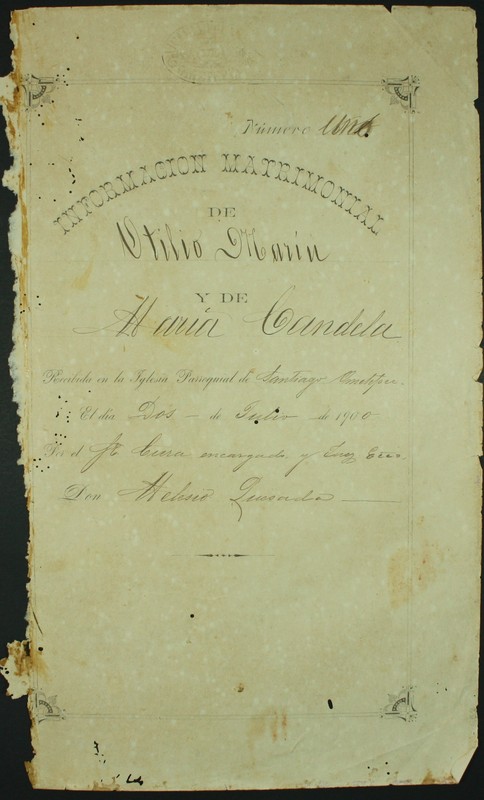 Número Uno
INFORMACION MATRIMONIAL
DE
Otilio Marin
Y DE
Maria Candela
Recibida en la Iglesia Parroquial de Santiago
El dia Dos - de Julio - de 1900
Por el Sr Cura encargado y Juez Ecco.
Don Quesada